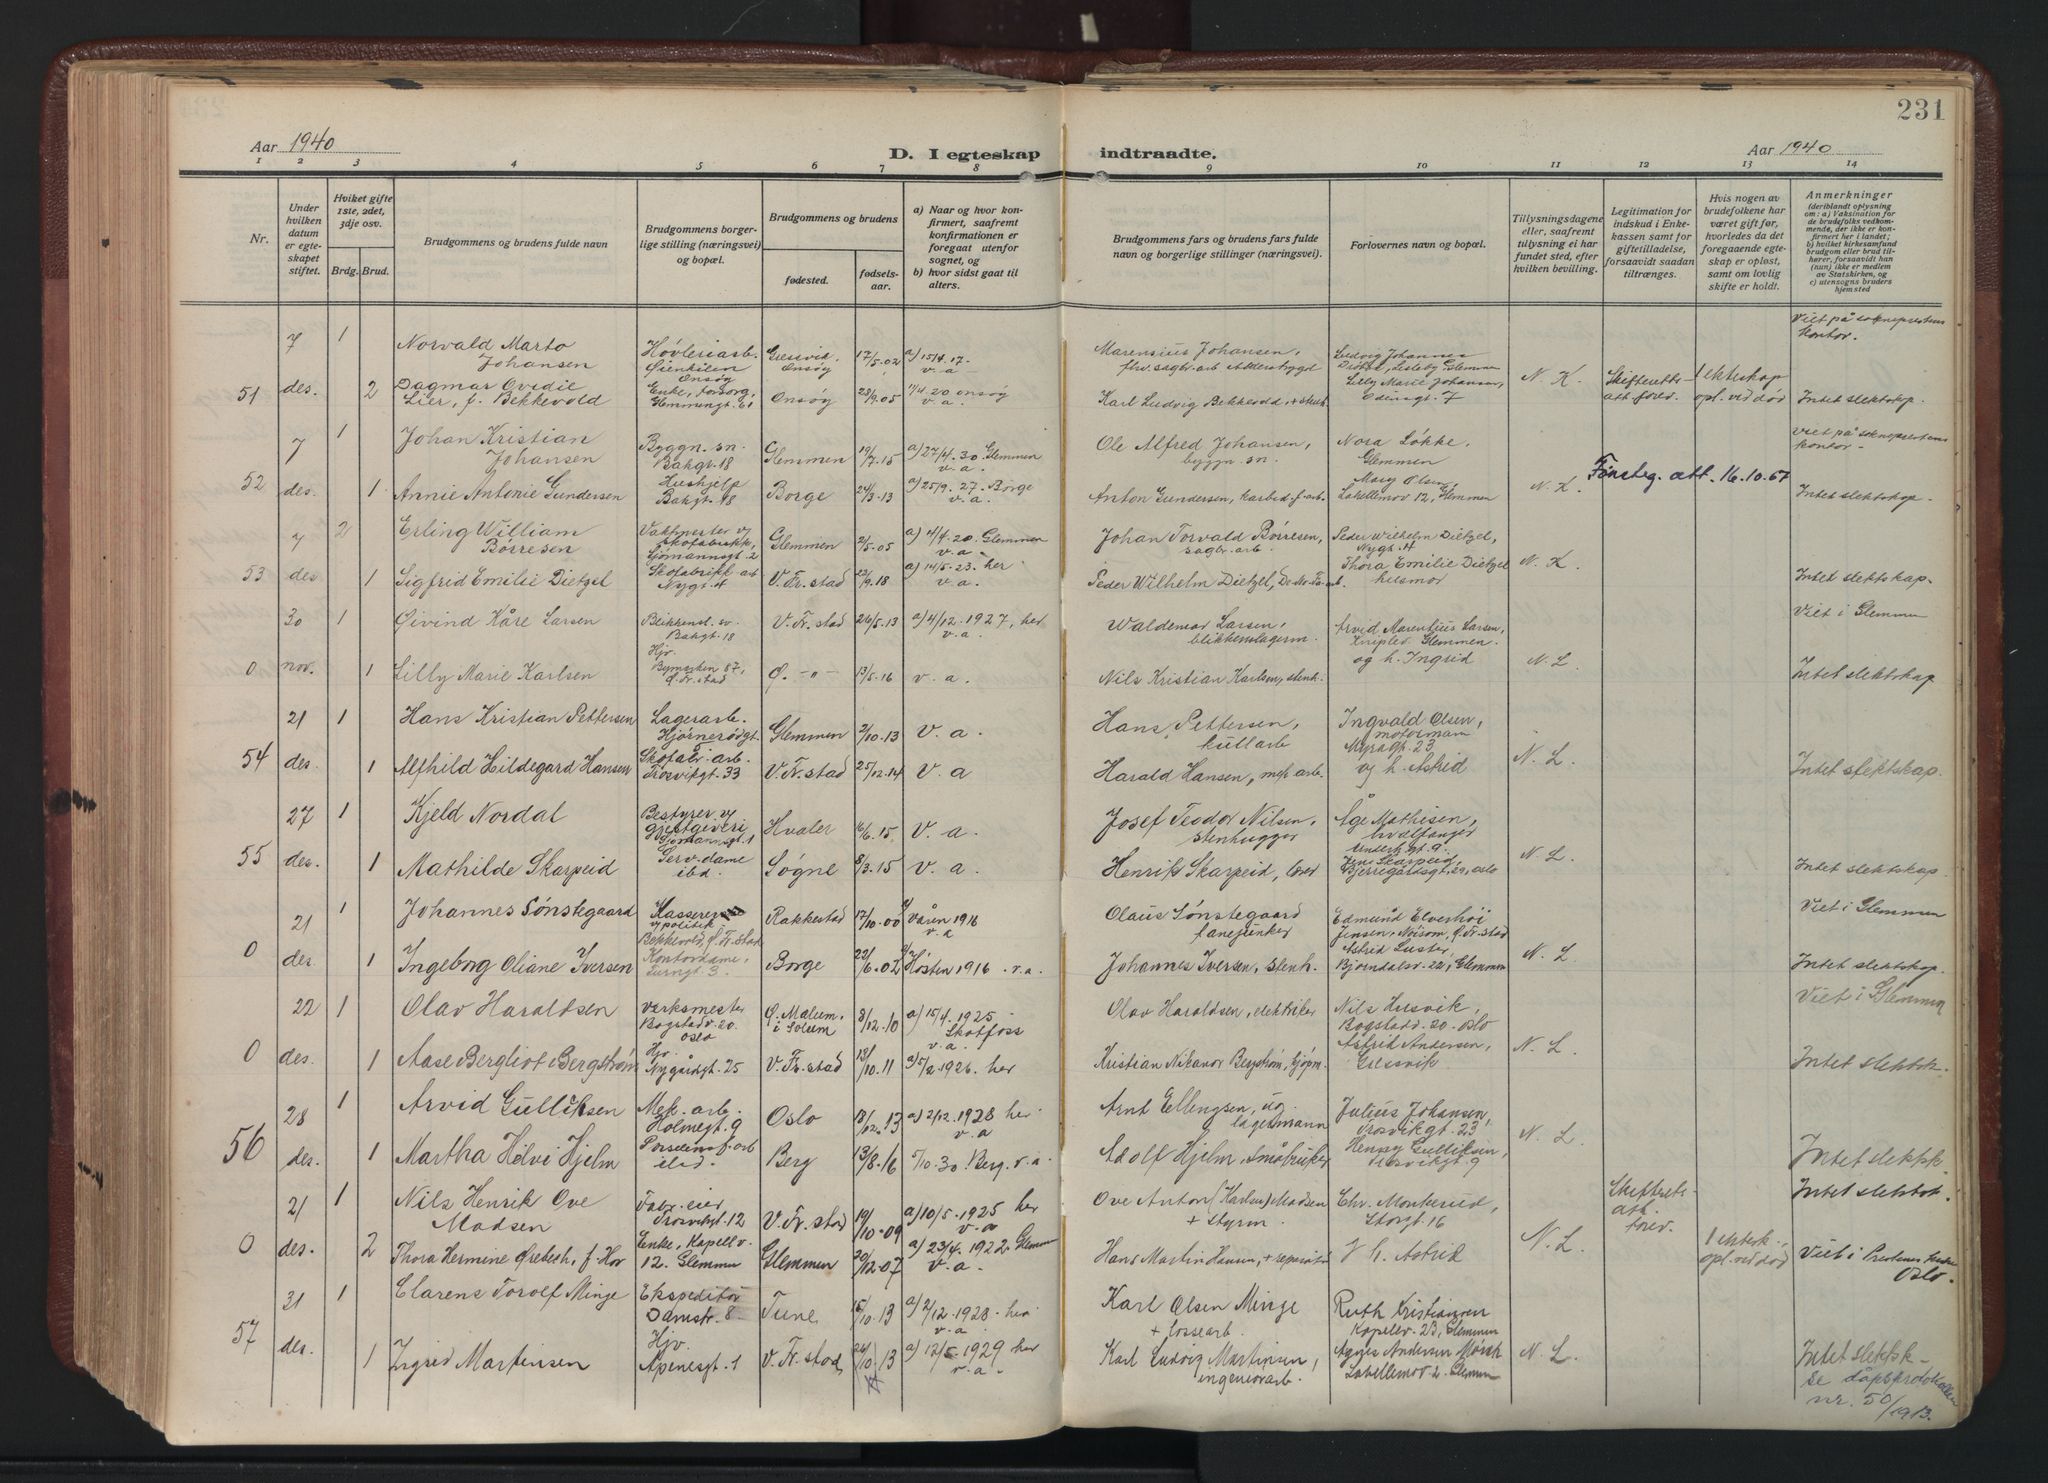 231
Aar 1940
D. I egteskap indtraadte.
Aar 1940
1 2 3 4 5 6 7 8 9 10 11 12 13 14
Nr.
Under hvilken datum er egteskapet stiftet.
Hviket gifte 1ste, 2det, 3dje osv.
Brdg. Brud.
Brudgommens og brudens fulde navn
Brudgommens borgerlige stilling (næringsvei) og bopæl.
Brudgommens og brudens
fødested.
fødselsaar.
a) Naar og hvor konfirmert, saafremt konfirmationen er foregaat utenfor sognet, og
b) hvor sidst gaat til alters.
Brudgommens fars og brudens fars fulde navn og borgerlige stillinger (næringsvei).
Forlovernes navn og bopæl.
Tillysningsdagene eller, saafremt tillysning ei har fundet sted, efter hvilken bevilling.
Legitimation for indskud i Enkekassen samt for giftetilladelse, forsaavidt saadan tiltrænges.
Hvis nogen av brudefolkene har været gift før, hvorledes da det foregaaende egteskap er opløst, samt om lovlig skifte er holdt.
Anmerkninger (deriblandt oplysning om: a) Vaksination for de brudefolks vedkommende, der ikke er konfirmert her i landet; b) hvilket kirkesamfund brudgom eller brud tilhører, forsaavidt han (hun) ikke er medlem av Statskirken, og c) utensogns bruders hjemsted
7 1 Norvald Marto Johansen Høvleriarb. Øienkilen Onsøy Græsvik, Onsøy 17/5.02 a) 15/4.17. v. a. Marensius Johansen, fhv. sagbr. arb Alderstrygd Ludvig Johannes Lisleby Glemmen Viet på sokneprestens kontor.
51 des. 2 Dagmar Ovedie Lier, f. Bekkevold Enke, forsorg, Glemmengt. 61 Onsøy 28/9.05 11/4.20 Onsøy v. a. Karl Ludvig Bekkevold, + Lilly Marie Johansen, Odinsgt. 7 N. K. Skifteretts att. forev. 1 ekteskap opl. ved død Intet slektskap.
7 1 Johan Kristian Johansen Byggn. sn. Bakgt. 18 Glemmen 19/7.15 a) 27/4.30 Glemmen v. a. Ole Alfred Johansen, byggn. sn. Nora Løkke, Glemmen Viet på sokneprestens kontor.
52 des. 1 Annie Antonie Gundersen Hushjelp Bakgt. 18 Borge 24/3.13 a) 25/9.27. Borge v. a. Anton Gundersen, karbid. f. arb. Mary Olsen, Labellenov 12, Glemmen N. K. Førsteg. att. 16.10.67 Intet slektskap.
7 2 Erling William Børresen Vaktmester v/ skofabrikk, Sjømannsgt. 2 Glemmen 2/5.05 a) 11/4.20. Glemmen v. a. Johan Torvald Børresen, sagbr. arb. Peder Wilhelm Dietzel, Nygt. 4
53 des 1 Sigfrid Emilie Dietzel Skofabrikk arb Nygt. 4 V. Fr. stad 22/9.18 a) 14/5.23. her v. a. Peder Wilhelm Dietzel, Thora Emilie Dietzel husmor N. K. Intet slektskap.
30 1 Øivind Kåre Larsen Blikkensl. sv. Bakgt. 18 V. Fr. stad 26/5.13 a) 4/12.1927, her v. a. Waldemar Larsen, blikkenslagerm. Arvid Marentius Larsen, Glemmen. Viet i Glemmen
0 nov. 1 Lilly Marie Karlsen Hjv. Bymarken 57, Ø. Fr. stad Ø. -"- 13/5.16 v. a. Nils Kristian Karlsen, stenh. og h. Ingrid N. L. Intet slektskap
21 1 Hans Kristian Pettersen Lagerarb. Hjørnerødgt. Glemmen 2/10.13 v. a. Hans Pettersen, kullarb Ingvald Olsen, motormann Myragt. 23
54 des. 1 Alfhild Hildegard Hansen Skofabr. arb. Trosvikgt. 33 V. Fr. stad 25/12.14 v. a Harald Hansen, mek arb. og h. Astrid N. L. Intet slektskap.
27 1 Kjeld Nordal Bestyrer v/ gjestgiveri Sjømannsgt. 1 Hvaler 16/6.15 v. a. Josef Teodor Nilsen, stenhugger Åge Mathisen, hvalfanger
55 des. 1 Mathilde Skarpeid Serv. dame ibd. Søgne 8/3.15 v. a. Henrik Skarpeid, Skarpeid, Bjerregårdsgt, 29, Oslo N. L. Intet slektskap.
21 1 Johannes Sønstegaard Kasserer v/ politik Bekkevold, Ø. Fr. stad Rakkestad 17/10.00 Våren 1916 v. a Olaus Sønstegaard fanejunker Edmund Elverhøi Jensen, Noisom, Ø. Fr. stad Viet i Glemmen
0 des. 1 Ingeborg Oliane Iversen Kontordame, Turngt. 3. Borge 22/6.02 Høsten 1916. v. a. Johannes Iversen, stenh. Astrid Luster, Bjørndalsv. 22, Glemmen N. L. Intet slektskap.
22 1 Olav Haraldsen Verksmester Bogstadv. 20. Oslo Ø. Malum, i Solum 8/12.10 a) 15/4.1925 Skotfoss v. a. Olav Haraldsen, elektriker Nils Husvik, Bogstadv. 20. Oslo Viet i Glemmen
0 des. 1 Aase Bergliot Bergstrøm Hjv. Nygårdsgt. 25 V. Fr. stad 13/10.11 a) 5/2.1926. her Kristian Nikanor Bergstrøm, Astrid Andersen, Gressvik N. L. Intet slektsk.
28 1 Arvid Gulliksen Mek. arb. Holmegt. 9 Oslo 18/02.13 a) 2/12.1928 her v. a Arnt Ellingsen, ug. lagermann Julius Johansen, Trosvikgt. 23
56 des. 1 Martha Helvi Hjelm Porselensf. arb ibd. Berg 13/8.16 5/10.30 Berg. v. a. Adolf Hjelm, småbruker Henry Gulliksen, Trosvikgt. 9 N. L. Intet slektsk.
21 1 Nils Henrik Ove Madsen Fabr. eier Trosvikgt. 12 V. Fr. stad 19/10.09 a) 10/5.1925 her v. a Ove Anton (Karlsen) Madsen + styrm. Chr. Monterud, Storgt. 16 Skifterets- att. forev. Intet slektsk.
0 des. 2 Thora Hermine Ørebech, f. Hov Enke, Kapellv. 12. Glemmen Glemmen 20/12.07 a) 23/4.1922. Glemmen v. a. Hans Martin + h. Astrid N. L. 1 ektesk., opl. ved død Viet i Oslo.
31 1 Clarens Torolf Minge Ekspeditør Damstr. 8 Tune 15/10.13 a) 2/12.1928. her v. a. Karl Olsen Minge + lossearb. Ruth Kristiansen Kapellv. 23, Glemmen
57 des. 1 Ingrid Martinsen Hjv. Apenesgt. 1 V. Fr. stad, 26/10.13 a) 12/5.1929 her v. a. Karl Ludvig Martinsen, ingeniørarb. Agnes Andersen Labellenov. 2. Glemmen N. L. Intet slektsk- se dåpsprotokollen nr. 50/1913.